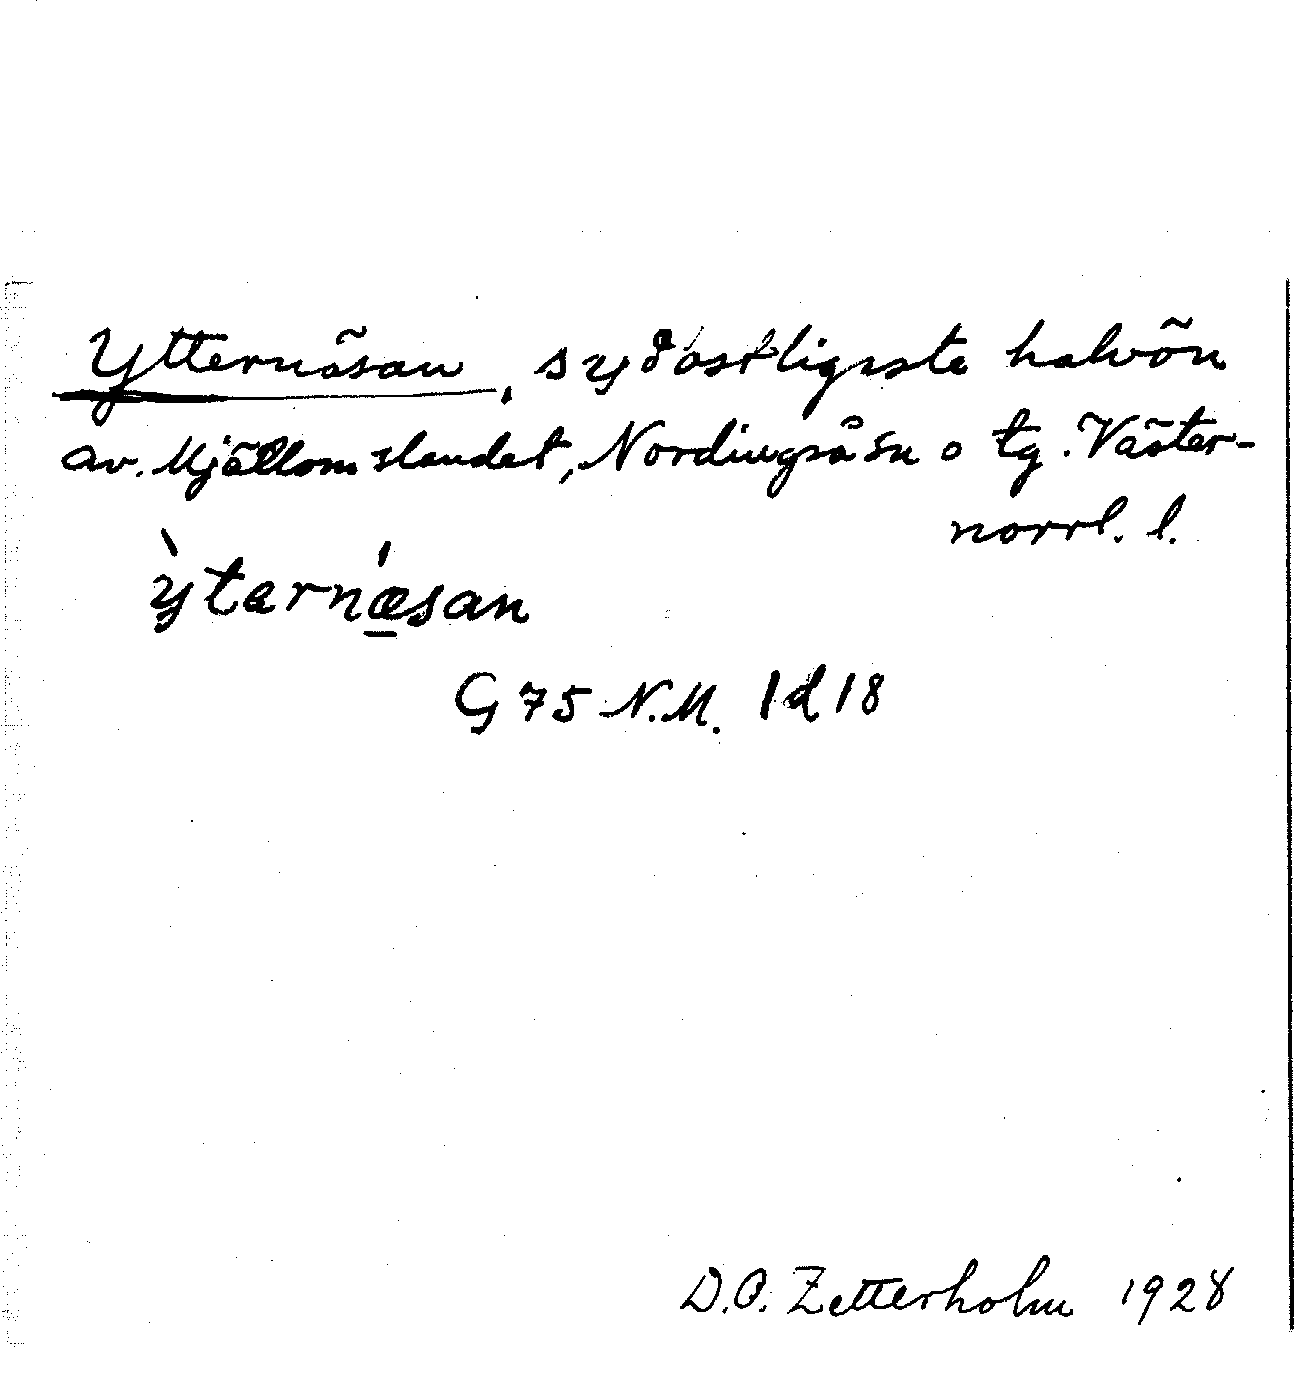 Ytternäsan, sydostligaste halvön
av Mjällomslandet, Nordingrå sn o tg. Väster-
norrl. l.
ỳternǽsan
G 75 N.M. 1d18
D.O. Zetterholm 1928